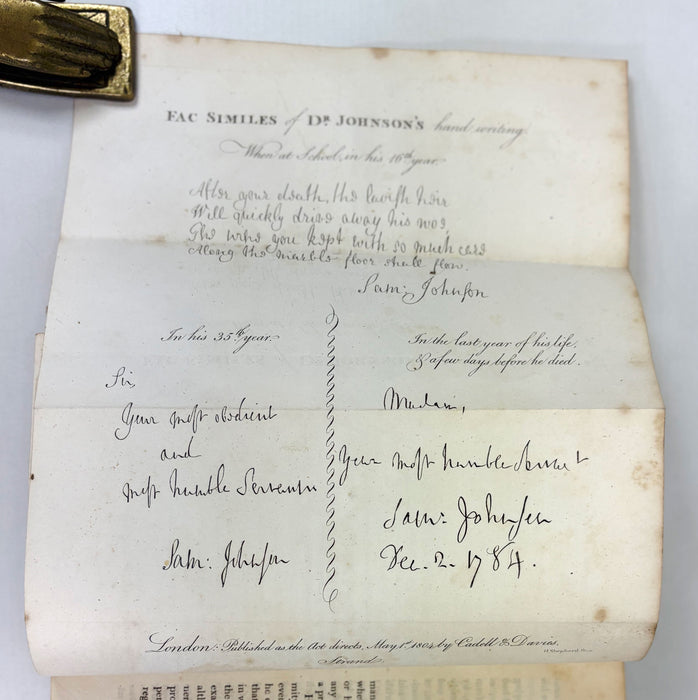 FAC SIMILES of DR. JOHNSON'S hand writing.
When at School, in his 16th year.
After your death, the lavish heir
Will quickly drive away his woe,
The wine you kept with so much care
Along the marble floor shall flow.
Sam: Johnson
In his 35th year.
Sir,
Your most obedient
and
most humble Servant
Sam: Johnson
In the last year of his life,
& a few days before he died.
Madam,
Your most humble Servant
Sam: Johnson
Dec. 2. 1784.
London: Published as the Act directs, May 1st 1804, by Cadell & Davies,
Strand.